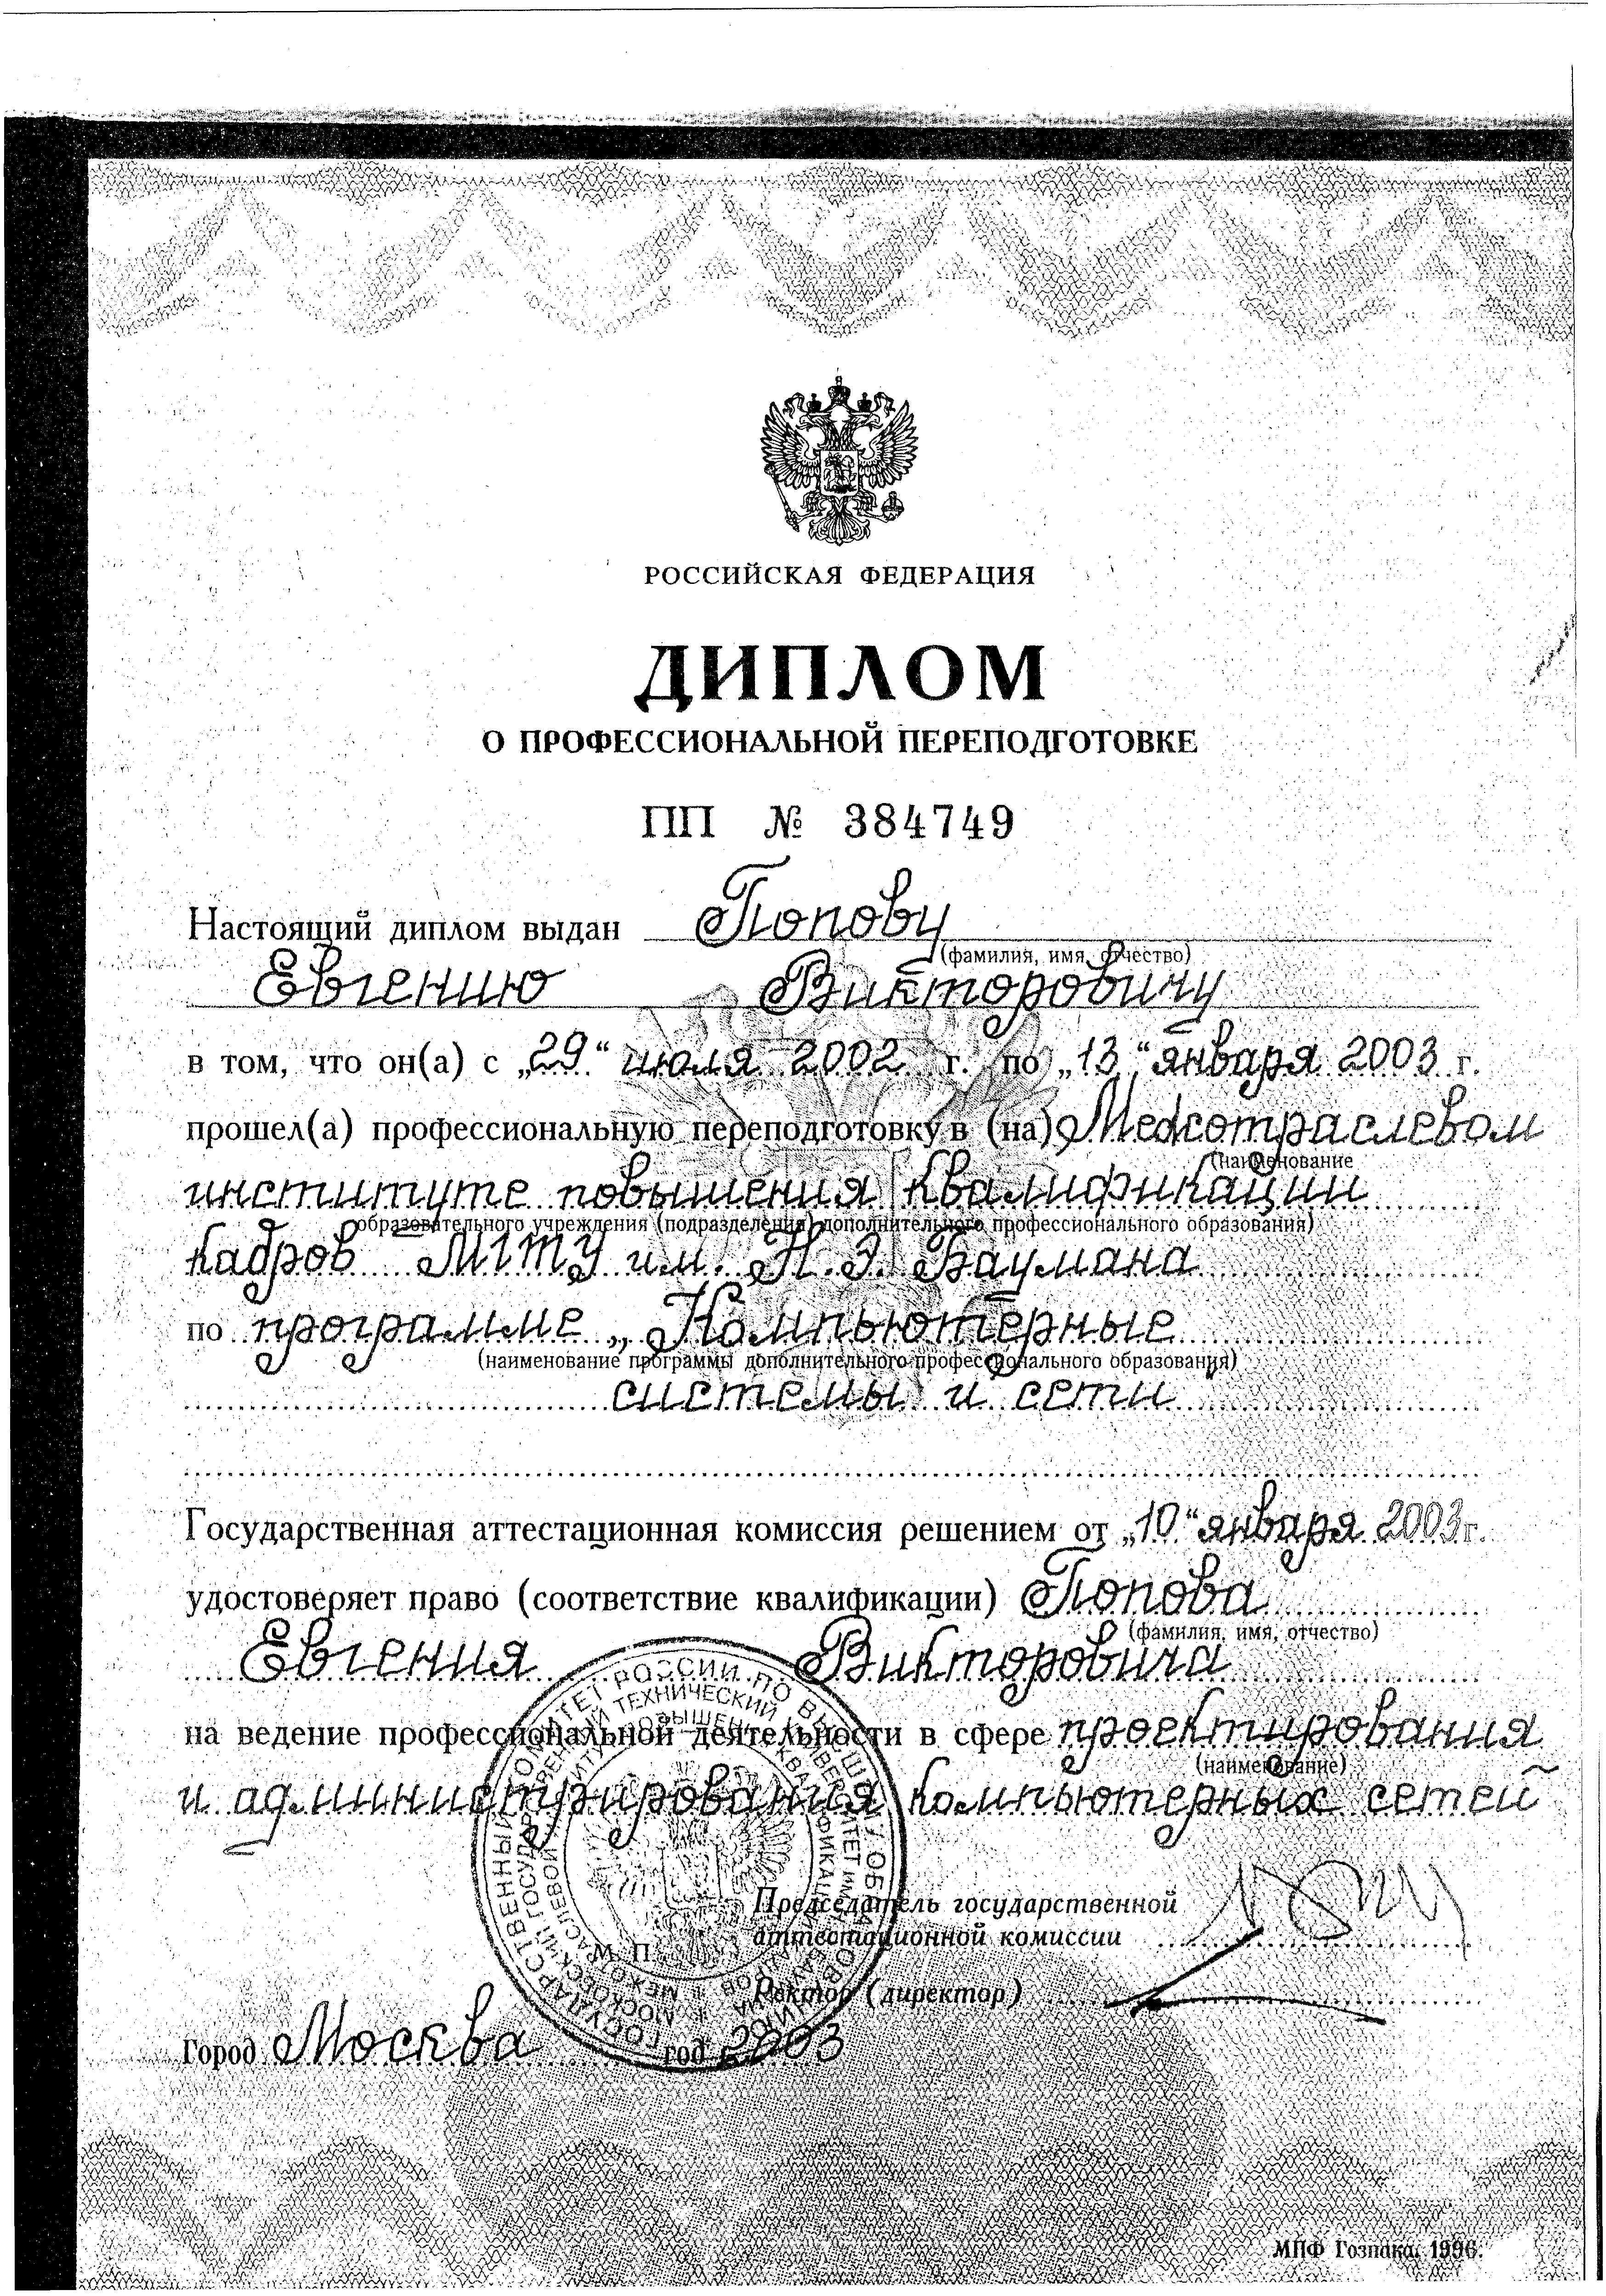 РОССИЙСКАЯ ФЕДЕРАЦИЯ
ДИПЛОМ
О ПРОФЕССИОНАЛЬНОЙ ПЕРЕПОДГОТОВКЕ
ПП № 384749
Настоящий диплом выдан Попову
(фамилия, имя, отчество)
Евгению Викторовичу
в том, что он(а) с „29“ июля 2002 г. по „13“ января 2003 г.
прошел(а) профессиональную переподготовку в (на) Межотраслевом
(наименование
институте повышения квалификации
образовательного учреждения (подразделения) дополнительного профессионального образования)
кадров МГТУ им. Н.Э. Баумана
по программе „Компьютерные
(наименование программы дополнительного профессионального образования)
системы и сети
Государственная аттестационная комиссия решением от „10“ января 2003 г.
удостоверяет право (соответствие квалификации) Попова
(фамилия, имя, отчество)
Евгения Викторовича
на ведение профессиональной деятельности в сфере проектирования
(наименование)
и администрирования компьютерных сетей
Председатель государственной
аттестационной комиссии
М. П.
Ректор (директор)
Город Москва год 2003
МПФ Гознака. 1996.